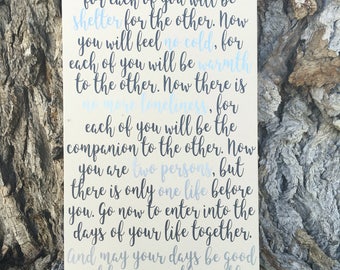 for each of you will be
shelter for the other. Now
you will feel no cold, for
each of you will be warmth
to the other. Now there is
no more loneliness, for
each of you will be the
companion to the other. Now
you are two persons, but
there is only one life before
you. Go now to enter into the
days of your life together.
And may your days be good